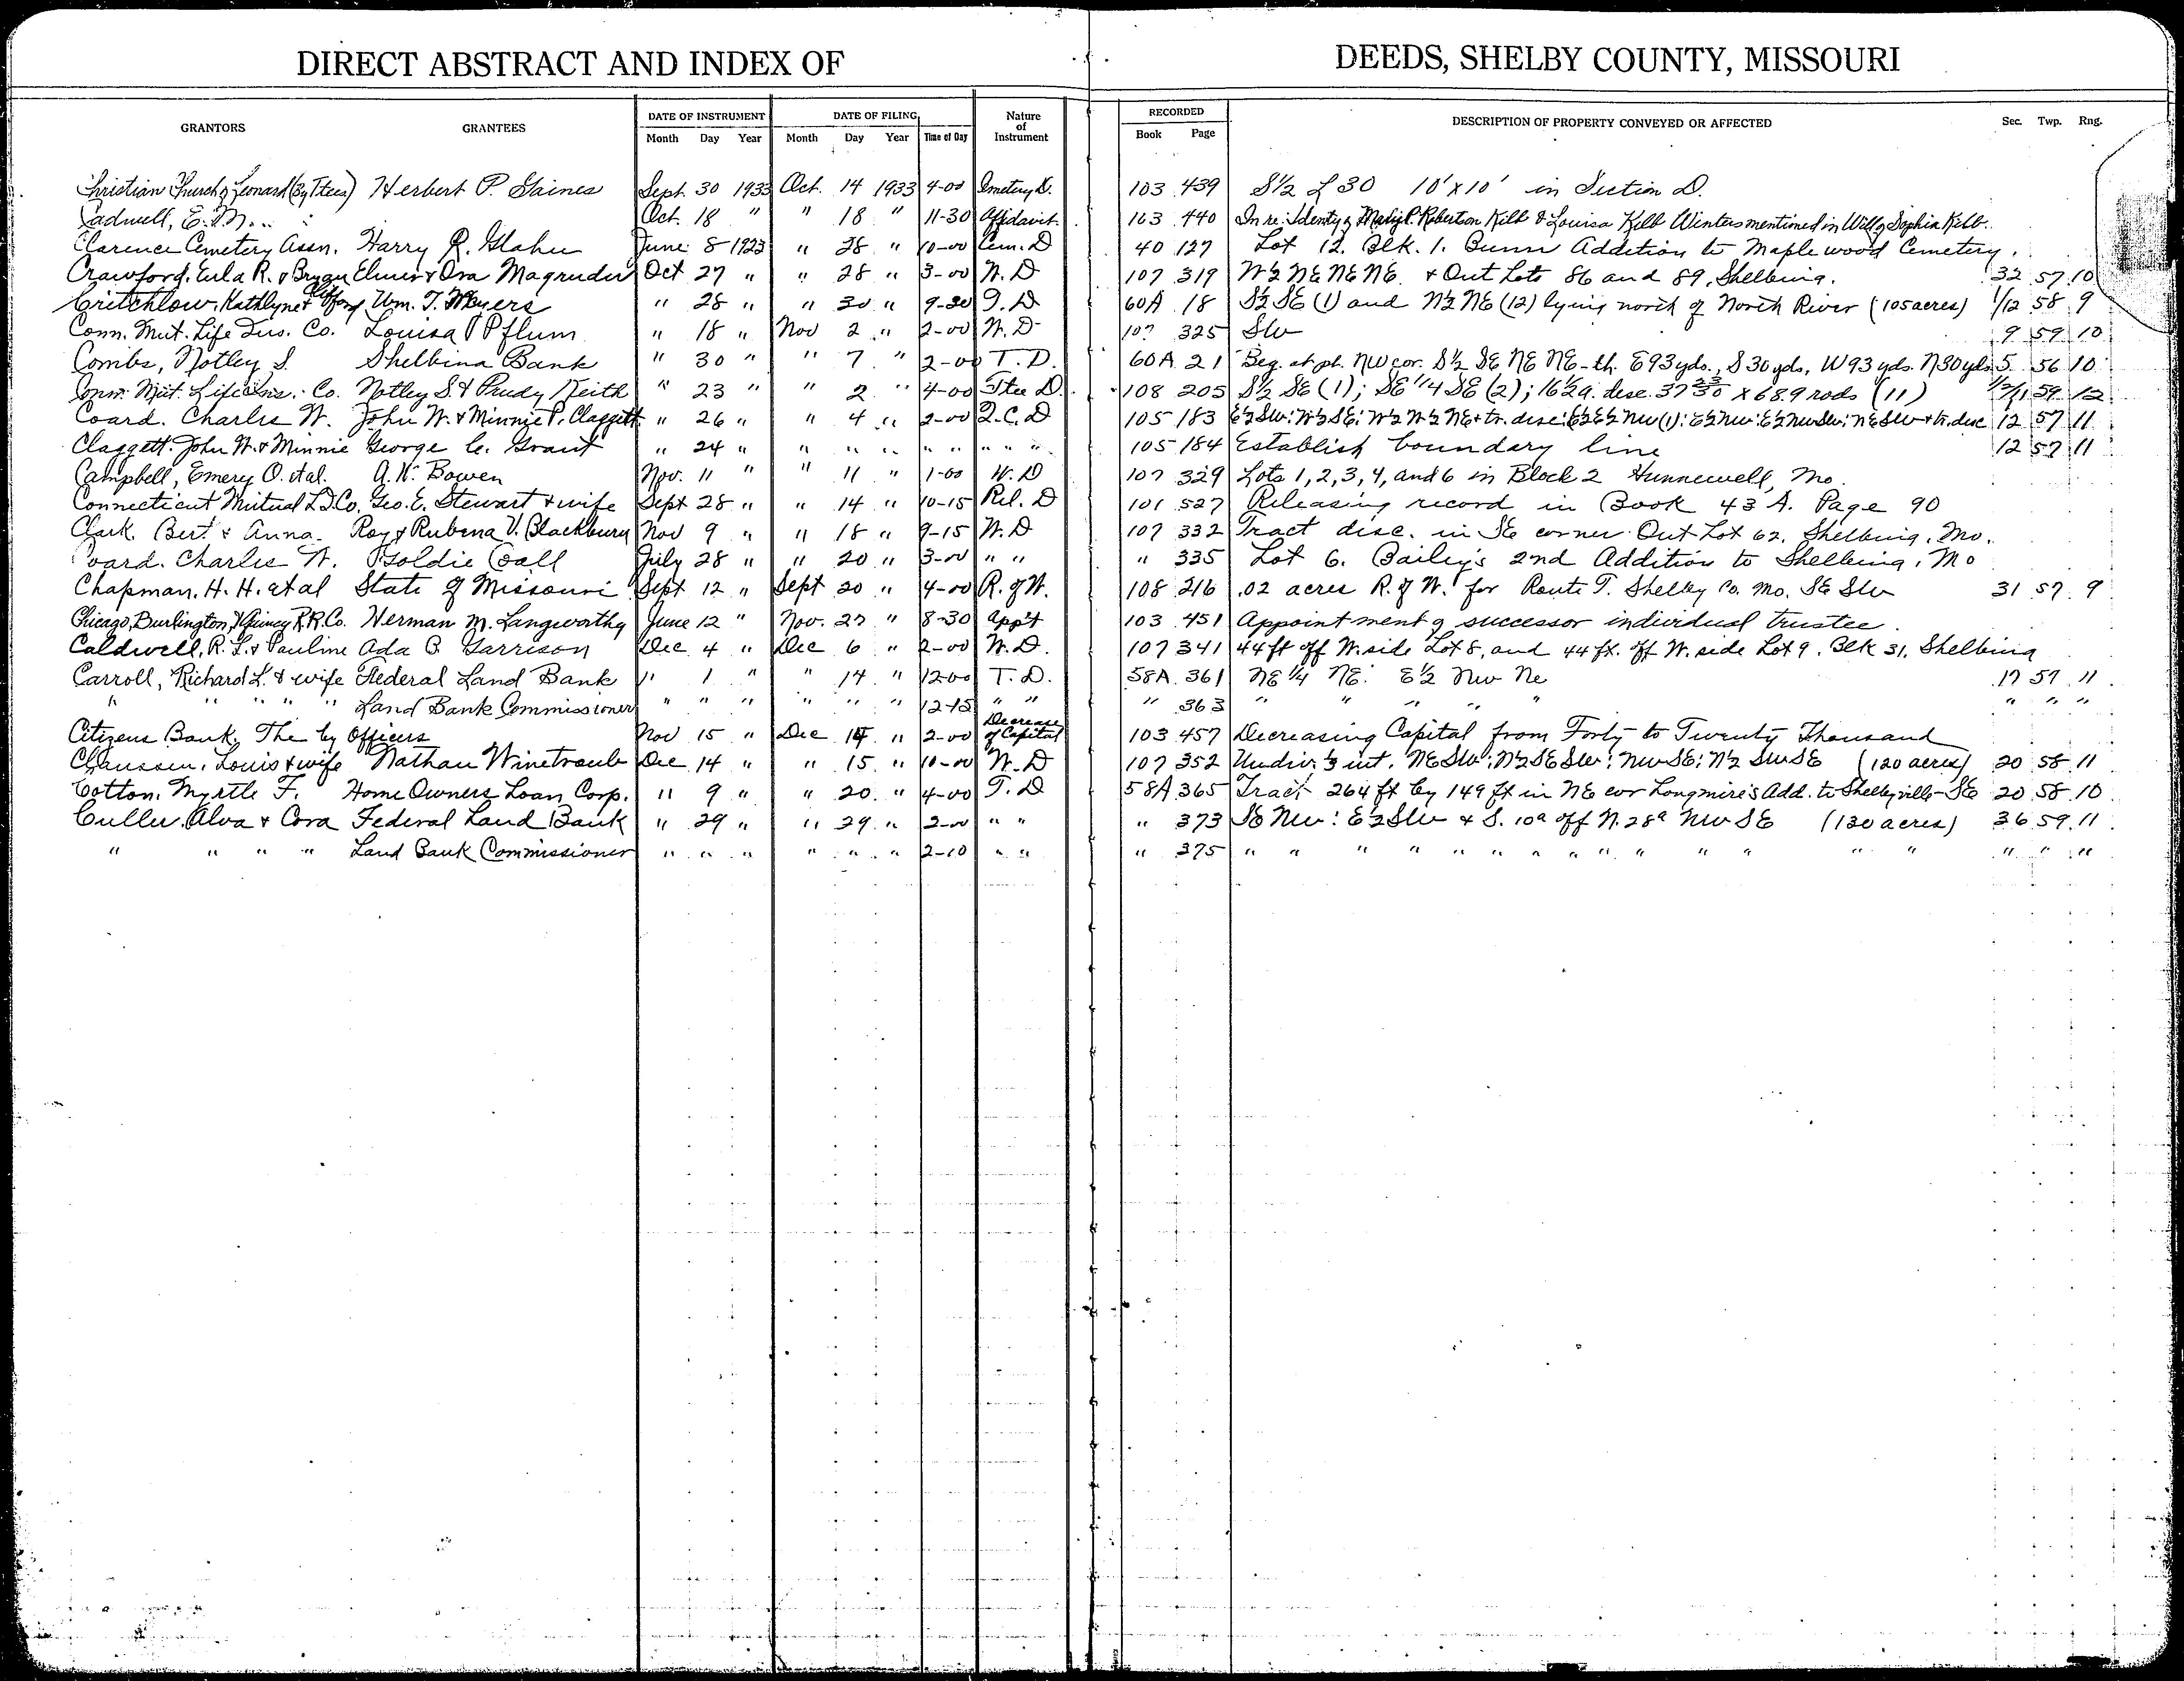 DIRECT ABSTRACT AND INDEX OF DEEDS, SHELBY COUNTY, MISSOURI
GRANTORS GRANTEES DATE OF INSTRUMENT Month Day Year DATE OF FILING Month Day Year Time of Day Nature of Instrument RECORDED Book Page DESCRIPTION OF PROPERTY CONVEYED OR AFFECTED Sec. Twp. Rng.
Christian Church of Leonard (By Ttees) Herbert P. Gaines Sept. 30 1933 Oct. 14 1933 4-00 Cmetery D. 103 439 S½ L 30 10'x10' in Section D.
Cadwell, E. M. Oct. 18 " " 18 " 11-30 Affidavit 103 440 In re: Identy of Robertson Kilb & Louisa Kilb Winters mentioned in Will of Sophia Kilb.
Clarence Cemetery Assn. Harry R. June 8 1923 " 28 " 10-00 Cem. D 40 127 Lot 12. Blk. 1. Bunn Addition to Maplewood Cemetery.
Crawford. Eula R. & Bryan Elmer & Ora Magruder Oct 27 " " 28 " 3-00 W. D 107 319 W½ NE NE NE. & Out Lots 86 and 89, Shelbina. 32 57 10
Critchlow, Kathlyne & Wm. T. Meyers " 28 " " 30 " 9-30 T. D 60A 18 S½ SE (1) and N½ NE (12) lying north of North River (105 acres) 1/12 58 9
Conn. Mut. Life Ins. Co. Louisa Pflum " 18 " Nov 2 " 2-00 W. D. 107 325 SW 9 59 10
Combs, Notley S. Shelbina Bank " 30 " " 7 " 2-00 T. D. 60A 21 Beg. at pt. NW cor. S½ SE NE NE - th. E 93 yds., S 30 yds, W 93 yds. N 30 yds 5 56 10
Conn. Mut. Life Ins. Co. Notley S. & Prudy Keith " 23 " " 2 " 4-00 Ttee D. 108 205 S½ SE (1); SE 1/4 SE (2); 16½ a. desc. x 689 rods (11) 59 12
Coard. Charles W. John W. & Minnie P. Claggett " 26 " " 4 " 2-00 Q. C. D 105 183 E½ SW: W½ SE: W½ W½ NE + tr. disc: E½ E½ NW (1): E½ NW: E½ NW SW: NE SW + tr. disc 12 57 11
Claggett. John W. & Minnie George C. Grant " 24 " " " " " " " " 105 184 Establish boundary line 12 57 11
Campbell, Emery O. etal. A. W. Bowen Nov. 11 " " 11 " 1-00 W. D 107 329 Lots 1, 2, 3, 4, and 6 in Block 2 Hunnewell, Mo.
Connecticut Mutual L. I. Co. Geo. E. Stewart & wife Sept 28 " " 14 " 10-15 Rel. D 101 527 Releasing record in Book 43 A. Page 90
Clark. Bert & Anna. Roy & Rubena V. Blackburn Nov 9 " " 18 " 9-15 W. D 107 332 Tract disc. in SE corner Out Lot 62. Shelbina. Mo.
Coard. Charles W. Goldie Call July 28 " " 20 " 3-00 " " " 335 Lot 6. Bailey's 2nd Addition to Shelbina, Mo
Chapman. H. H. etal State of Missouri Sept 12 " Sept 20 " 4-00 R. of W. 108 216 .02 acres R. of W. for Route T. Shelby Co. Mo. SE SW 31 57 9
Chicago, Burlington, & Quincy R. R. Co. Herman M. Langworthy June 12 " Nov. 27 " 8-30 App't 103 451 Appointment of successor individual trustee.
Caldwell, R. L. & Pauline Ada B. Garrison Dec 4 " Dec 6 " 2-00 W. D. 107 341 44 ft off W. side Lot 8, and 44 ft. off W. side Lot 9. Blk 31. Shelbina
Carroll, Richard L. & wife Federal Land Bank " 1 " " 14 " 12-00 T. D. 58A 361 NE ¼ NE: E½ NW NE 17 57 11
" " " " " Land Bank Commissioner " " " " " " 12-15 " " " 363 " " " " " " "
Citizens Bank, The by Officers Nov 15 " Dec 14 " 2-00 Decrease of Capital 103 457 Decreasing Capital from Forty to Twenty Thousand
Claussen, Louis & wife Nathan Winetroub Dec 14 " " 15 " 10-00 W. D 107 352 Undiv. ⅓ int. NE SW: N½ SE SW: NW SE: N½ SW SE (120 acres) 20 58 11
Cotton, Myrtle F. Home Owners Loan Corp. " 9 " " 20 " 4-00 T. D 58A 365 Tract 264 ft by 149 ft in NE cor Longmire's Add. to Shelbyville - SE 20 58 10
Culler, Alva & Cora Federal Land Bank " 29 " " 29 " 2-00 " " " 373 SE NW: E½ SW & S. 10a off N. 28a NW SE (130 acres) 36 59 11
" " " " Land Bank Commissioner " " " " " " 2-10 " " " 375 " " " " " " " " " " " " " " " " " "